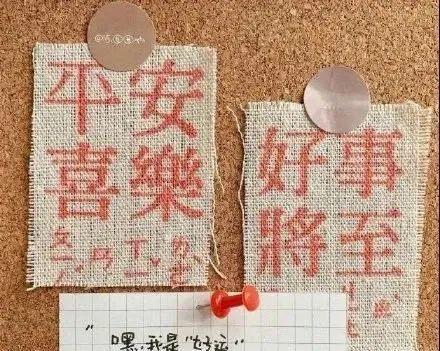 平安
喜樂
好事
將至
"嘿,我是"好运"